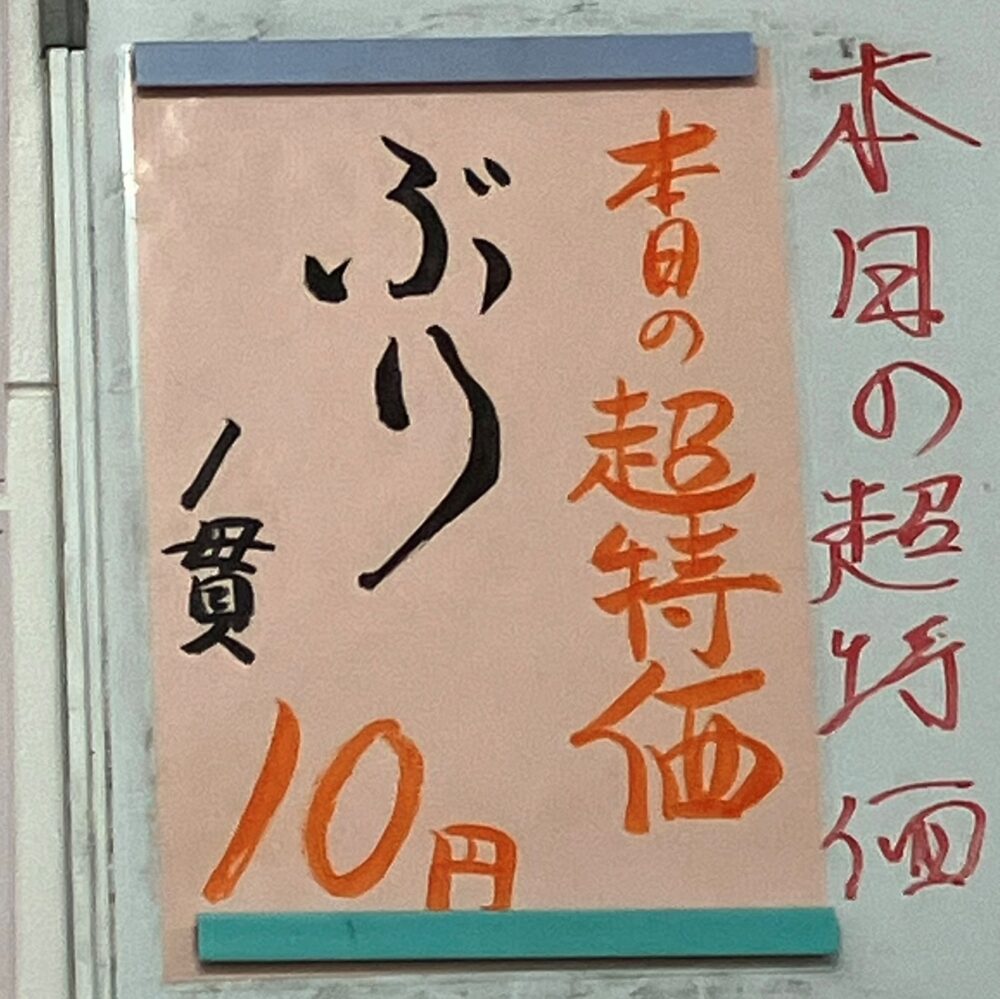 本日の超特価
本日の超特価
ぶり
1貫
10円